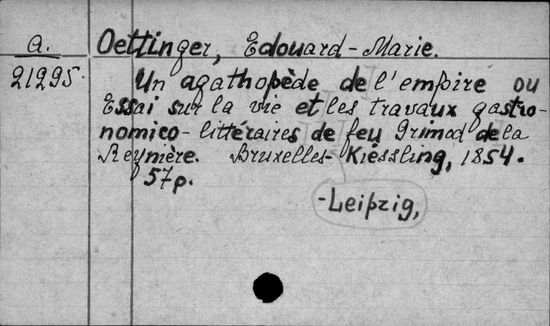 a. Oettinger, Edouard-Marie.
21295. Un agathopède de l'empire ou
Essai sur la vie et les travaux gastro-
nomico-littéraires de feu Grimod de la
Reynière. Bruxelles- Kiessling, 1854.
57 p.
-Leipzig,